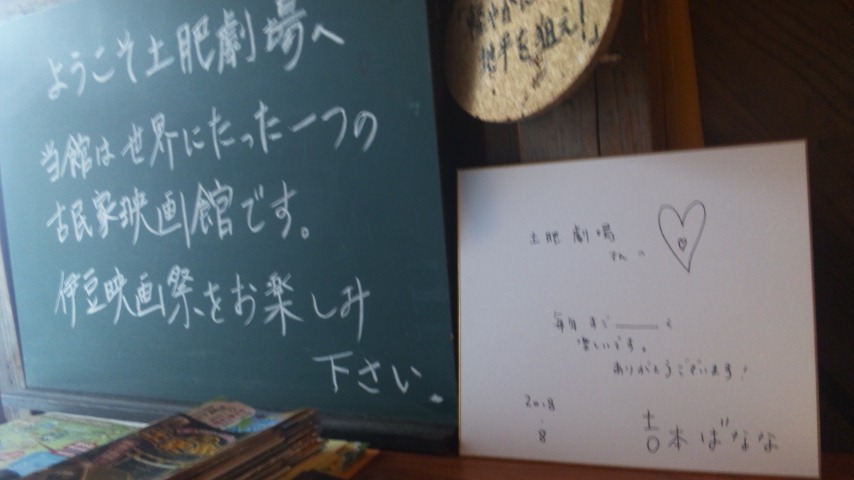 ようこそ土肥劇場へ
当館は世界にたった一つの
古民家映画館です。
伊豆映画祭をお楽しみ
下さい。
地平を狙え!」
土肥劇場
さんへ
毎年 すご――く
楽しいです。
ありがとうございます!
2018
.
8
吉本ばなな